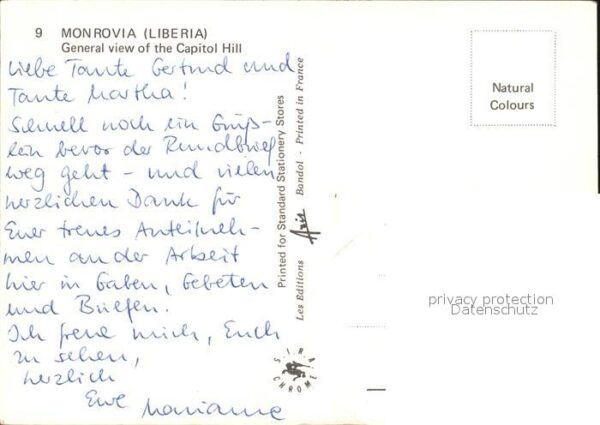 9 MONROVIA (LIBERIA)
General view of the Capitol Hill
Liebe Tante Gertrud und
Tante Martha!
Schnell noch ein Grüß-
lein bevor der Rundbrief
weg geht - und vielen
herzlichen Dank für
Euer treues Anteilneh-
men an der Arbeit
hier in Gaben, Gebeten
und Briefen.
Ich freue mich, Euch
zu sehen,
herzlich
Eure Marianne
Printed for Standard Stationery Stores
Les Editions Aris Bandol - Printed in France
Natural
Colours
privacy protection
Datenschutz
S.I.R.A.
CHROME